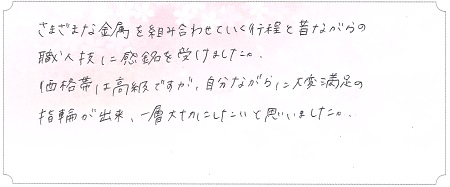 さまざまな金属を組み合わせていく行程と昔ながらの
職人技に感銘を受けました。
価格帯は高級ですが、自分ながらに大変満足の
指輪が出来、一層大切にしたいと思いました。